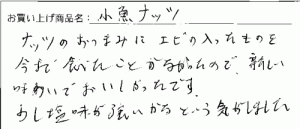 お買い上げ商品名: 小魚ナッツ
ナッツのおつまみにエビの入ったものを
今まで食べたことがなかったので、新しい
味わいでおいしかったです。
少し塩味が強いかなという気がしました